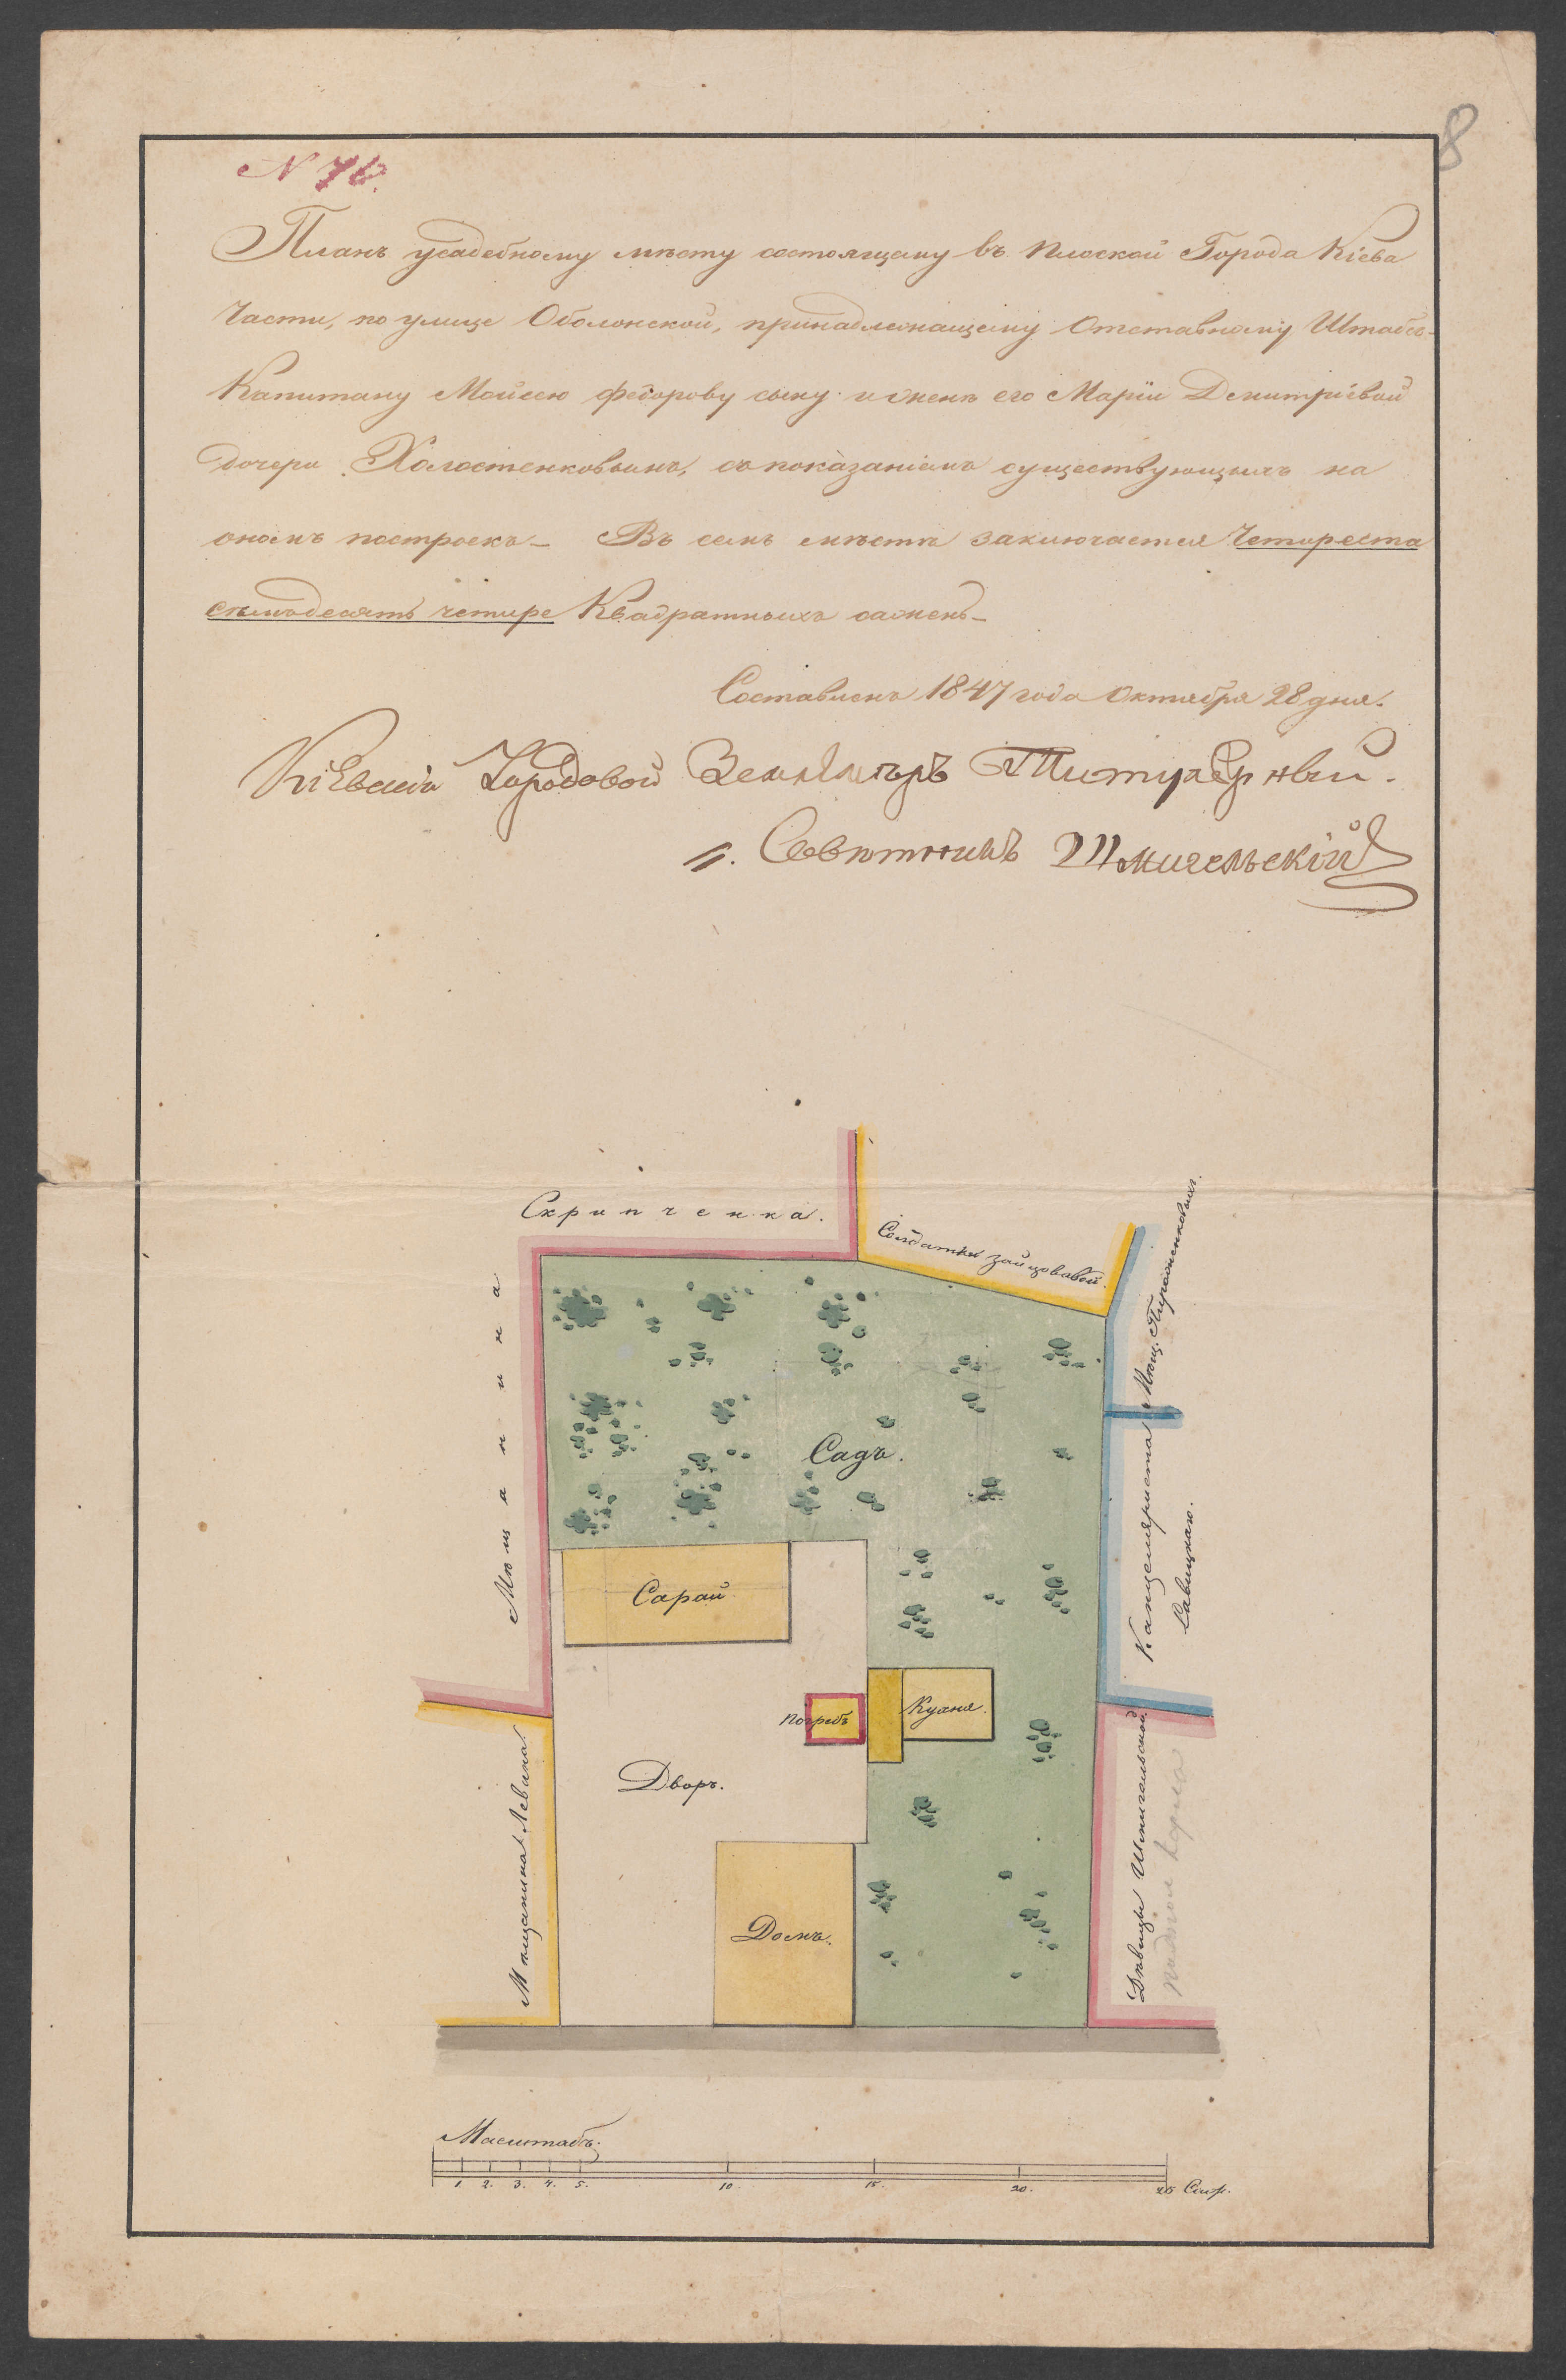 8
N 76.
Планъ усадебному мѣсту состоящему въ Плоской Города Кіева
Части, по улице Оболонской, принадлежащему Отставному Штабсъ-
Капитану Мойсею Федорову сыну и женѣ его Маріи Демитріевой
дочери Холостенковымъ, съ показаніемъ существующихъ на
ономъ построекъ – Въ семъ мѣстѣ заключается Четыреста
семьдесятъ четыре Квадратныхъ сажень –
Составленъ 1847 года Октября 28 дня.
Кіевскій Городовой Землемѣръ
п. Совѣтникъ Шмигельскій
Скрипченка.
Солдатки Зайцововой.
Мѣщ. Пироженковыхъ.
Мѣщанина
Садъ.
Канцеляриста
Савицкаго.
Сарай
Кухня.
Погребъ
Дворъ.
Мѣщанина Левина.
Дѣвицы Шмигельской.
Домъ.
Масштабъ.
1. 2. 3. 4. 5. 10. 15. 20. 25 Саж.